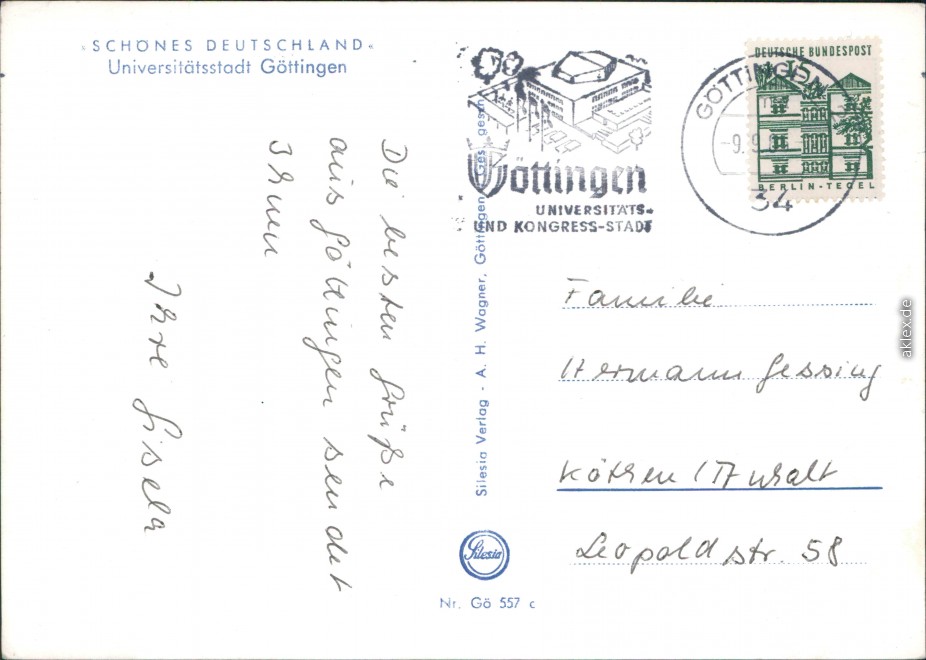 »SCHÖNES DEUTSCHLAND«
Universitätsstadt Göttingen
Die besten Grüße
aus Göttingen sendet
Ihnen
Ihre Gisela
Silesia Verlag - A. H. Wagner, Göttingen Ges. gesch.
Silesia
Nr. Gö 557 c
Göttingen
UNIVERSITÄTS-
UND KONGRESS-STADT
GÖTTINGEN
-9.9.
34
DEUTSCHE BUNDESPOST
15
BERLIN-TEGEL
Familie
Hermann Gessing
Köthen / Anhalt
Leopoldstr. 58
aklex.de